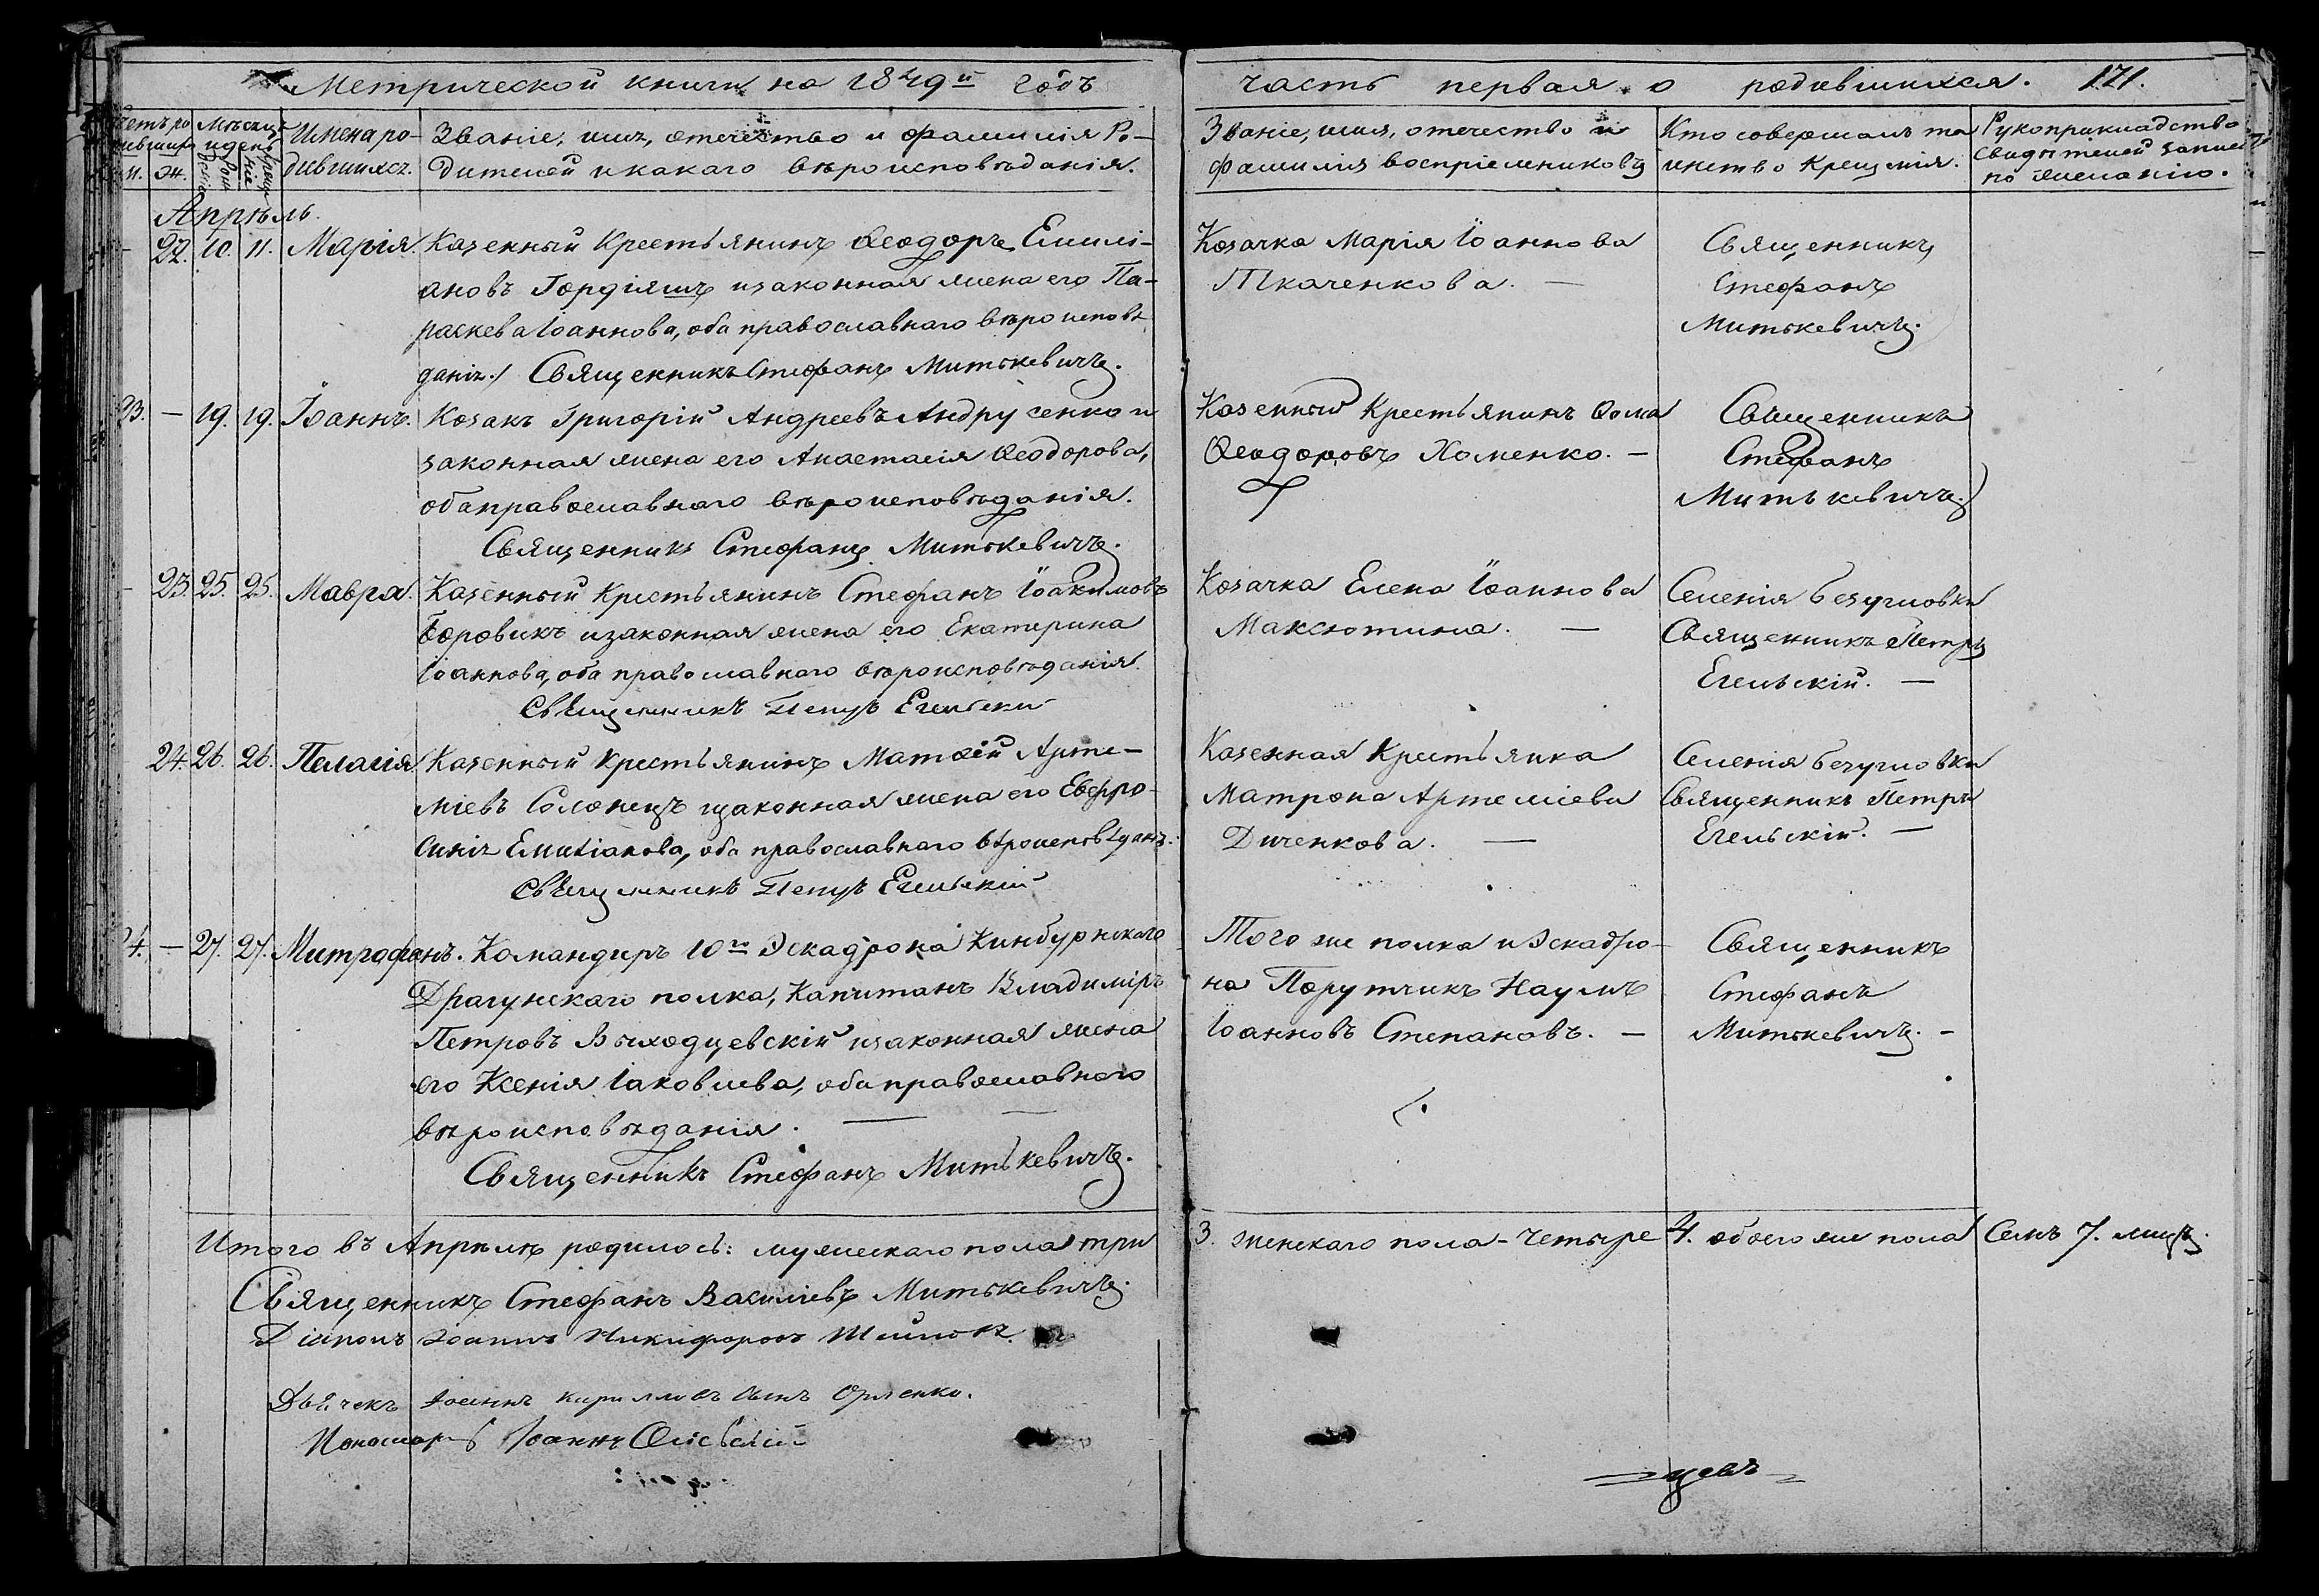 Метрической книги на 1849й годъ
часть первая о родившихся. 171.
Счетъ родившихся
М. Ж.
Мѣсяцъ и день
Рожденія
Крещенія
Имена ро-
дившихся.
Званіе, имя, отечество и фамилія Ро-
дителей и какаго вѣроисповѣданія.
Званіе, имя, отечество и
фамилія воспріемниковъ
Кто совершалъ та
инство Крещенія.
Рукоприкладство
свидѣтелей записи
по желанію.
Апрѣль.
22. 10. 11. Марія. Казенный Крестьянинъ Ѳеодоръ Емилі-
ановъ Гордіяшъ изаконная жена его Па-
раскева Іоаннова, оба православнаго вѣроисповѣ
данія. / Священникъ Стефанъ Митькевичъ.
Козачка Марія Іоаннова
Ткаченкова. —
Священникъ
Стефанъ
Митькевичъ.
23. — 19. 19. Іоаннъ. Козакъ Григорій Андреевъ Андрусенко и
законная жена его Анастасія Ѳеодорова,
оба православнаго вѣроисповѣданія.
Священникъ Стефанъ Митькевичъ.
Казенный Крестьянинъ Ѳома
Ѳеодоровъ Хоменко. —
Священникъ
Стефанъ
Митькевичъ.
— 23. 25. 25. Мавра. Казенный Крестьянинъ Стефанъ Іоакимовъ
Боровикъ изаконная жена его Екатерина
Іоаннова, оба православнаго вѣроисповѣданія.
Священникъ Петръ Егельский
Козачка Елена Іоаннова
Максютина. —
Селенія Безугловки
Священникъ Петръ
Егельскій. —
24. 26. 26. Пелагія. Казенный Крестьянинъ Матѳей Арте-
міевъ Солонецъ изаконная жена его Евфро-
синія Емиліанова, оба православнаго вѣроисповѣданія.
Священникъ Петръ Егельскій
Казенная Крестьянка
Матрона Артеміева
Диченкова. —
Селенія Безугловки
Священникъ Петръ
Егельскій. —
24. — 27. 27. Митрофанъ. Командиръ 10го Эскадрона Кинбурнскаго
Драгунскаго полка, Капитанъ Владиміръ
Петровъ Выходцевскій изаконная жена
его Ксенія Іаковлева, оба православнаго
вѣроисповѣданія. —
Священникъ Стефанъ Митькевичъ.
Того же полка и Эскадро-
на Порутчикъ Наумъ
Іоанновъ Степановъ. —
Священникъ
Стефанъ
Митькевичъ. —
Итого въ Апрѣлѣ родилось: мужескаго пола три
3. женскаго пола – четыре 4. обоего же пола Семъ 7. лицъ.
Священникъ Стефанъ Василіевъ Митькевичъ.
Діаконъ Іоаннъ Никифоровъ
Дьячекъ Іоаннъ Кирилловъ сынъ Орленко.
Пономарь Іоаннъ
цевъ